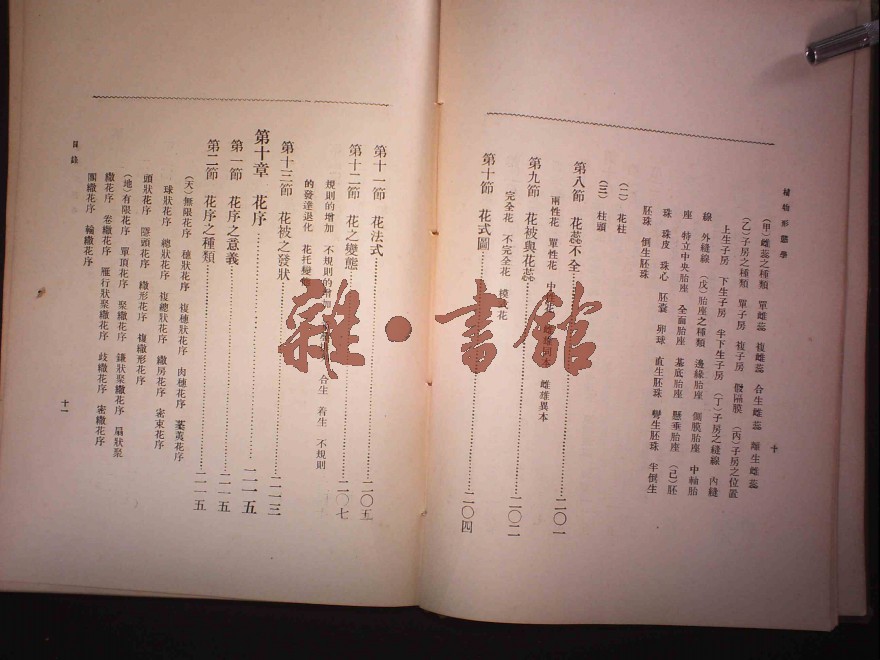 植物形態學
十
(甲)雌蕊之種類 單雌蕊 複雌蕊 合生雌蕊 離生雌蕊
(乙)子房之種類 單子房 複子房 假隔膜 (丙)子房之位置
上生子房 下生子房 半下生子房 (丁)子房之縫線 內縫
線 外縫線 (戊)胎座之種類 邊緣胎座 側膜胎座 中軸胎
座 特立中央胎座 全面胎座 基底胎座 懸垂胎座 (己)胚
珠 珠皮 珠心 胚囊 卵球 直生胚珠 彎生胚珠 半倒生
胚珠 倒生胚珠
(二) 花柱
(三) 柱頭
第八節 花蕊不全……二〇一
兩性花 單性花 中性花 雌雄異本
第九節 花被與花蕊……二〇二
完全花 不完全花 模 花
第十節 花式圖……二〇四
第十一節 花法式……二〇五
第十二節 花之變態……二〇七
規則的增加 不規則的增加 合生 着生 不規則
的發達退化 花托變
第十三節 花被之發狀……二一三
第十章 花序……二一五
第一節 花序之意義……二一五
第二節 花序之種類……二一五
(天)無限花序 穗狀花序 複穗狀花序 肉穗花序 葇荑花序
球狀花序 總狀花序 複總狀花序 繖房花序 密束花序
頭狀花序 隱頭花序 繖形花序 複繖形花序
(地)有限花序 單頂花序 聚繖花序 鐮狀聚繖花序 扇狀聚
繖花序 卷繖花序 雁行狀聚繖花序 歧繖花序 密繖花序
團繖花序 輪繖花序
目錄
十一
雜·書館